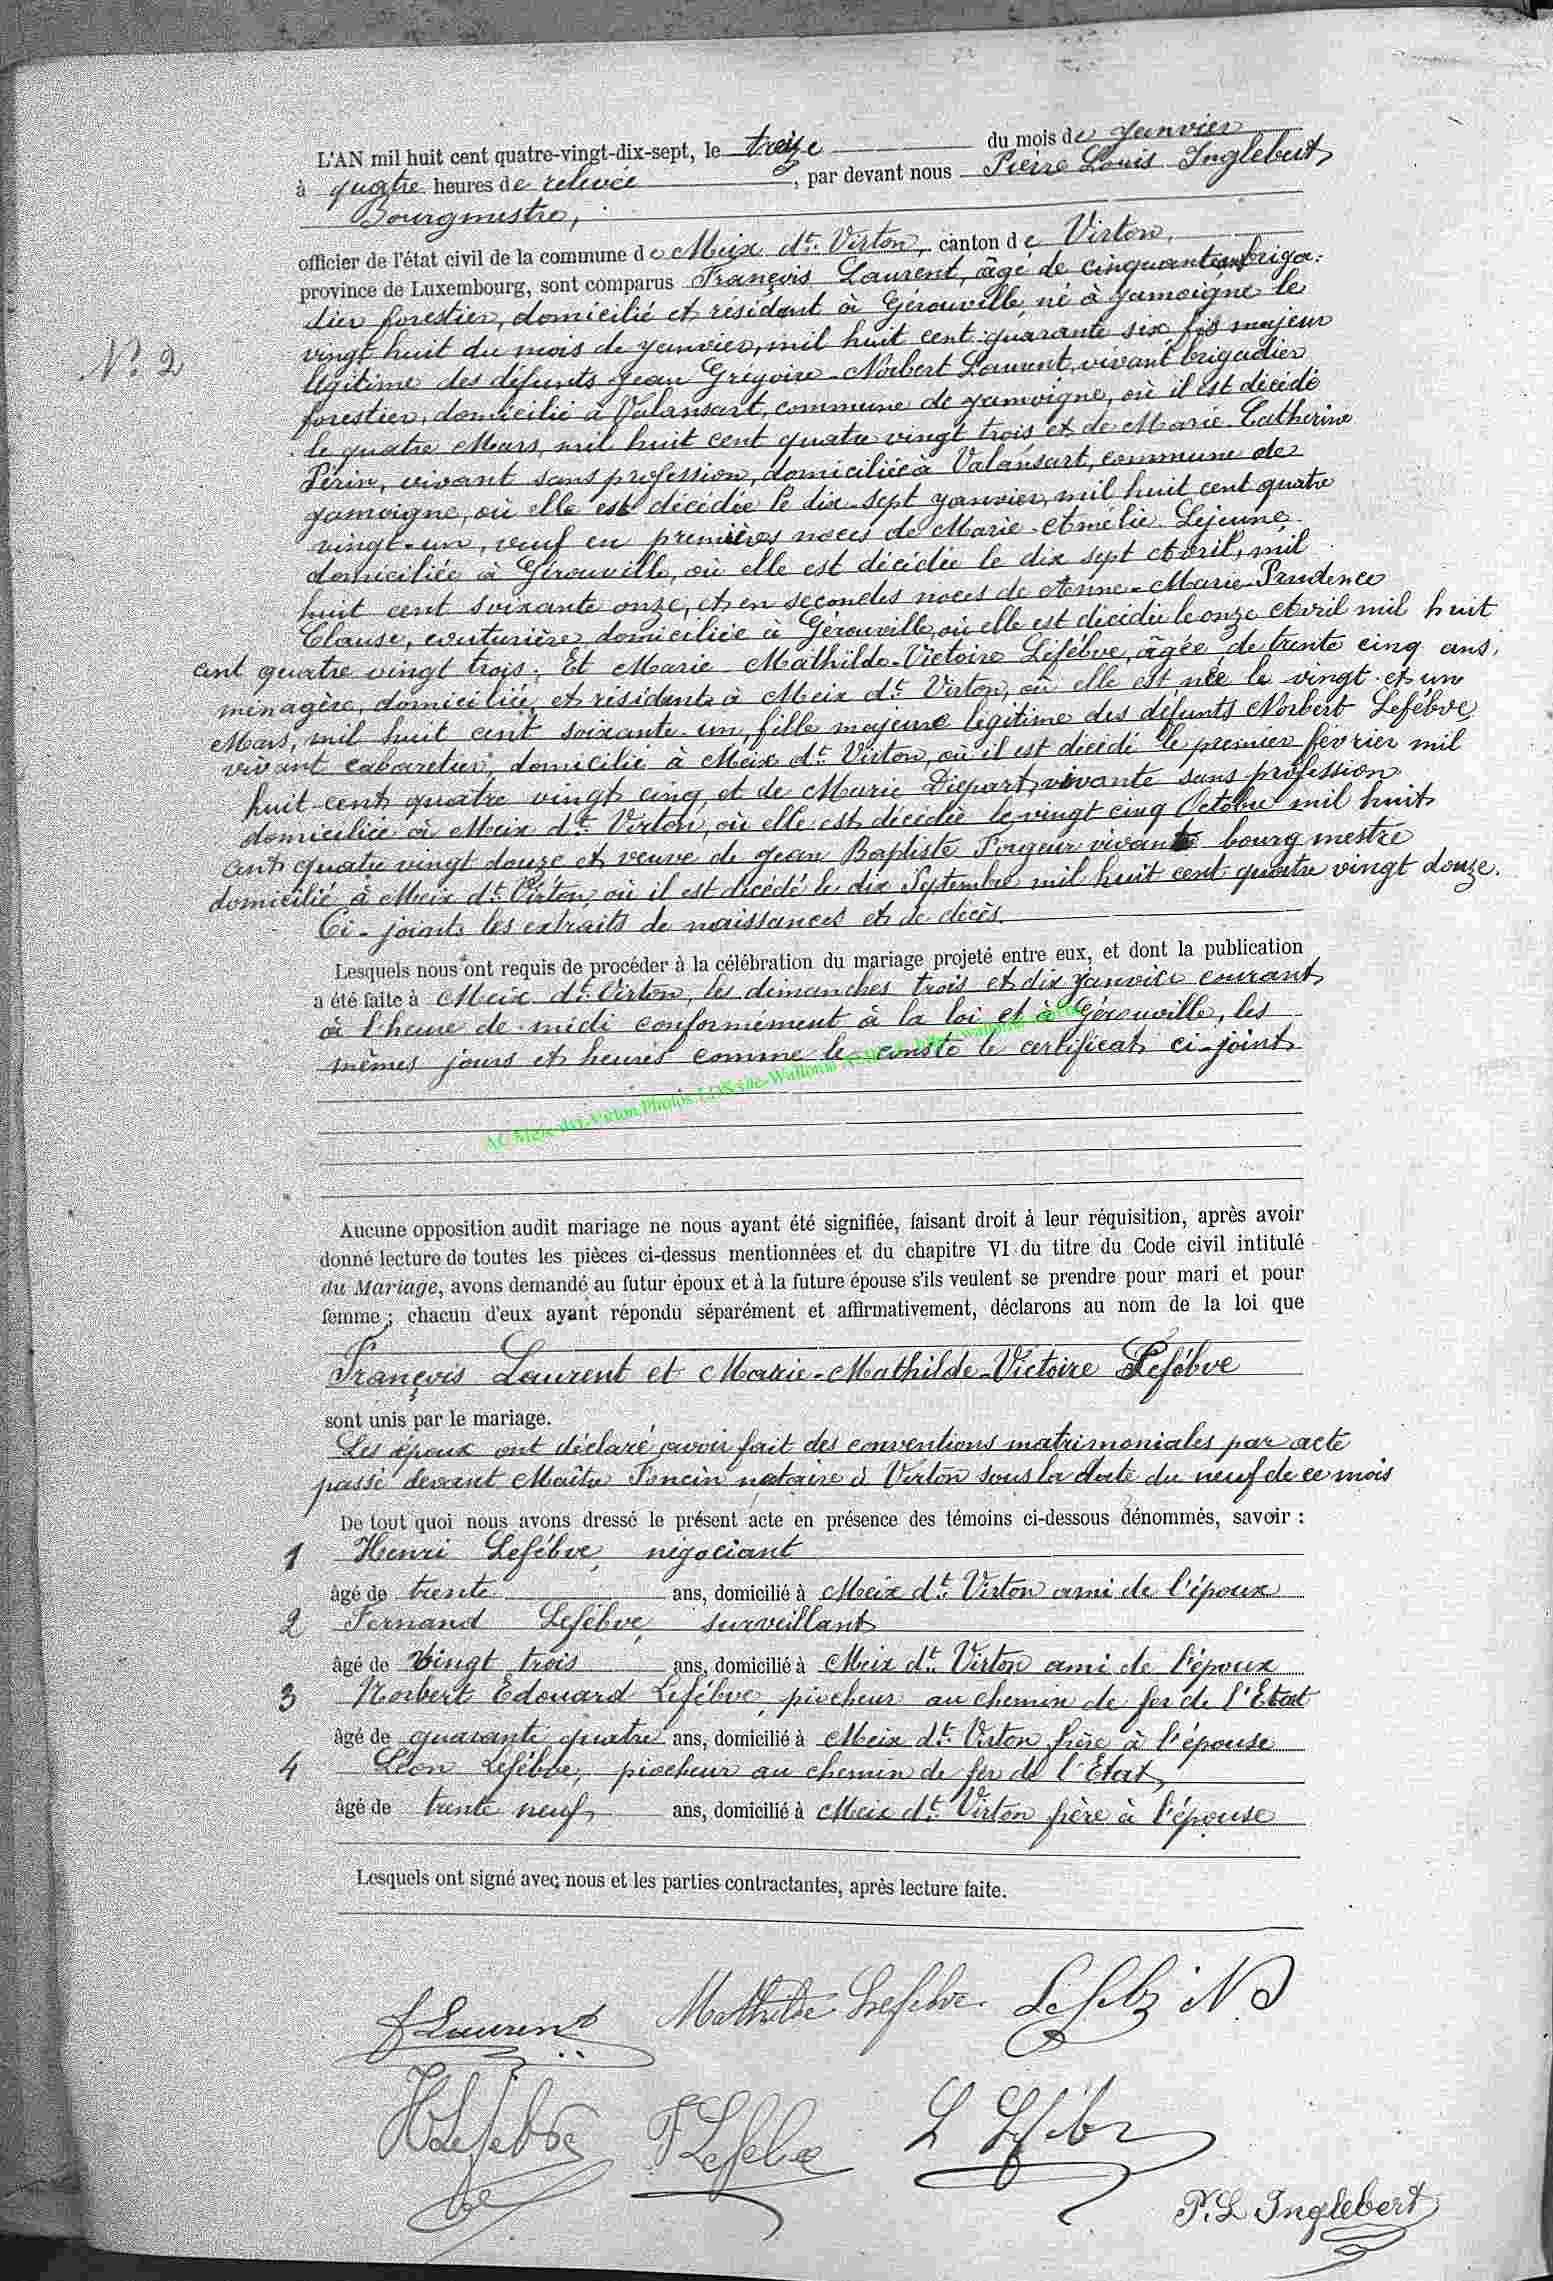 L'AN mil huit cent quatre-vingt-dix-sept, le treize du mois de janvier
à quatre heures de relevée, par devant nous Pierre Louis Inglebert
Bourgmestre,
officier de l'état civil de la commune de Meix dt. Virton, canton de Virton,
province de Luxembourg, sont comparus François Laurent, âgé de cinquante ans briga-
dier forestier, domicilié et résidant à Gérouville, né à Jamoigne le
vingt huit du mois de janvier, mil huit cent quarante six fils majeur
N° 2
légitime des défunts Jean Grégoire-Norbert Laurent, vivant brigadier
forestier, domicilié à Valansart, commune de Jamoigne, où il est décédé
le quatre Mars, mil huit cent quatre vingt trois et de Marie Catherine
Périn, vivant sans profession, domiciliée à Valansart, commune de
Jamoigne, où elle est décédée le dix-sept janvier, mil huit cent quatre
vingt-un, veuf en premières noces de Marie-Amélie Lejeune
domiciliée à Gérouville, où elle est décédée le dix sept Avril, mil
huit cent soixante onze, et en secondes noces de Anne-Marie-Prudence
Clause, couturière domiciliée à Gérouville, où elle est décédée le onze Avril mil huit
cent quatre vingt trois. Et Marie Mathilde-Victoire Lefébve, âgée de trente cinq ans,
ménagère, domiciliée et résidante à Meix dt. Virton, où elle est née le vingt et un
Mars, mil huit cent soixante-un, fille majeure légitime des défunts Norbert Lefébve,
vivant cabaretier, domicilié à Meix dt. Virton, où il est décédé le premier fevrier mil
huit cent quatre vingt cinq, et de Marie Diepart, vivante sans profession
domiciliée à Meix dt. Virton, où elle est décédée le vingt cinq Octobre mil huit
cent quatre vingt douze et veuve de Jean Baptiste vivant bourgmestre
domicilié à Meix dt. Virton, où il est décédé le dix Septembre mil huit cent quatre vingt douze.
Ci-joints les extraits de naissances et de décès.
Lesquels nous ont requis de procéder à la célébration du mariage projeté entre eux, et dont la publication
a été faite à Meix dt. Virton, les dimanches trois et dix janvier courant
à l'heure de midi conformément à la loi et à Gérouville, les
mêmes jours et heures comme le conste le certificat ci-joint
Aucune opposition audit mariage ne nous ayant été signifiée, faisant droit à leur réquisition, après avoir
donné lecture de toutes les pièces ci-dessus mentionnées et du chapitre VI du titre du Code civil intitulé
du Mariage, avons demandé au futur époux et à la future épouse s'ils veulent se prendre pour mari et pour
femme ; chacun d'eux ayant répondu séparément et affirmativement, déclarons au nom de la loi que
François Laurent et Marie-Mathilde-Victoire Lefébve
sont unis par le mariage.
Les époux ont déclaré avoir fait des conventions matrimoniales par acte
passé devant Maître Foncin notaire à Virton sous la date du neuf de ce mois
De tout quoi nous avons dressé le présent acte en présence des témoins ci-dessous dénommés, savoir :
1 Henri Lefébve, négociant
âgé de trente ans, domicilié à Meix dt. Virton ami de l'époux
2 Fernand Lefébve, surveillant
âgé de vingt trois ans, domicilié à Meix dt. Virton ami de l'époux
3 Norbert Edouard Lefébve, piocheur au chemin de fer de l'Etat
âgé de quarante quatre ans, domicilié à Meix dt. Virton frère à l'épouse
4 Léon Lefébve, piocheur au chemin de fer de l'Etat,
âgé de trente neuf ans, domicilié à Meix dt. Virton frère à l'épouse
Lesquels ont signé avec nous et les parties contractantes, après lecture faite.
F Laurent Mathilde Lefebve
H Lefebve F Lefebve L Lefébv
P. L Inglebert